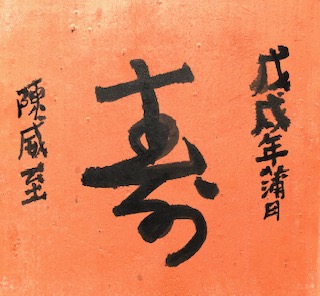 戊戌年蒲月
寿
陳威至